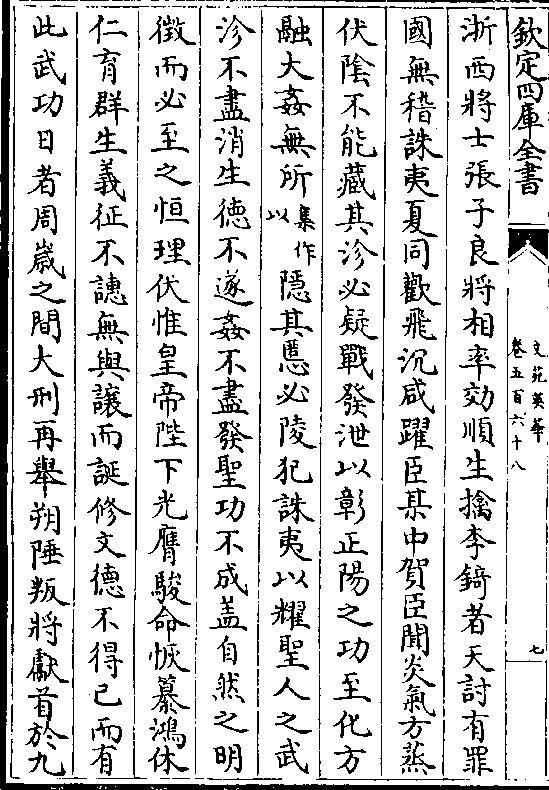 欽定四庫全書
文苑英華
卷五百六十八
七
浙西將士張子良將相率効順生擒李錡者天討有罪
國無稽誅夷夏同歡飛沉咸躍臣某中賀臣聞炎氣方蒸
伏陰不能藏其沴必疑戰發泄以彰正陽之功至化方
融大姦無所集作以隱其慝必陵犯誅夷以耀聖人之武
沴不盡消生德不遂姦不盡發聖功不成盖自然之明
徵而必至之恒理伏惟皇帝陛下光膺駿命恢纂鴻休
仁育群生義征不譓無與讓而誕修文德不得已而有
此武功日者周嵗之間大刑再舉朔陲叛將獻首於九